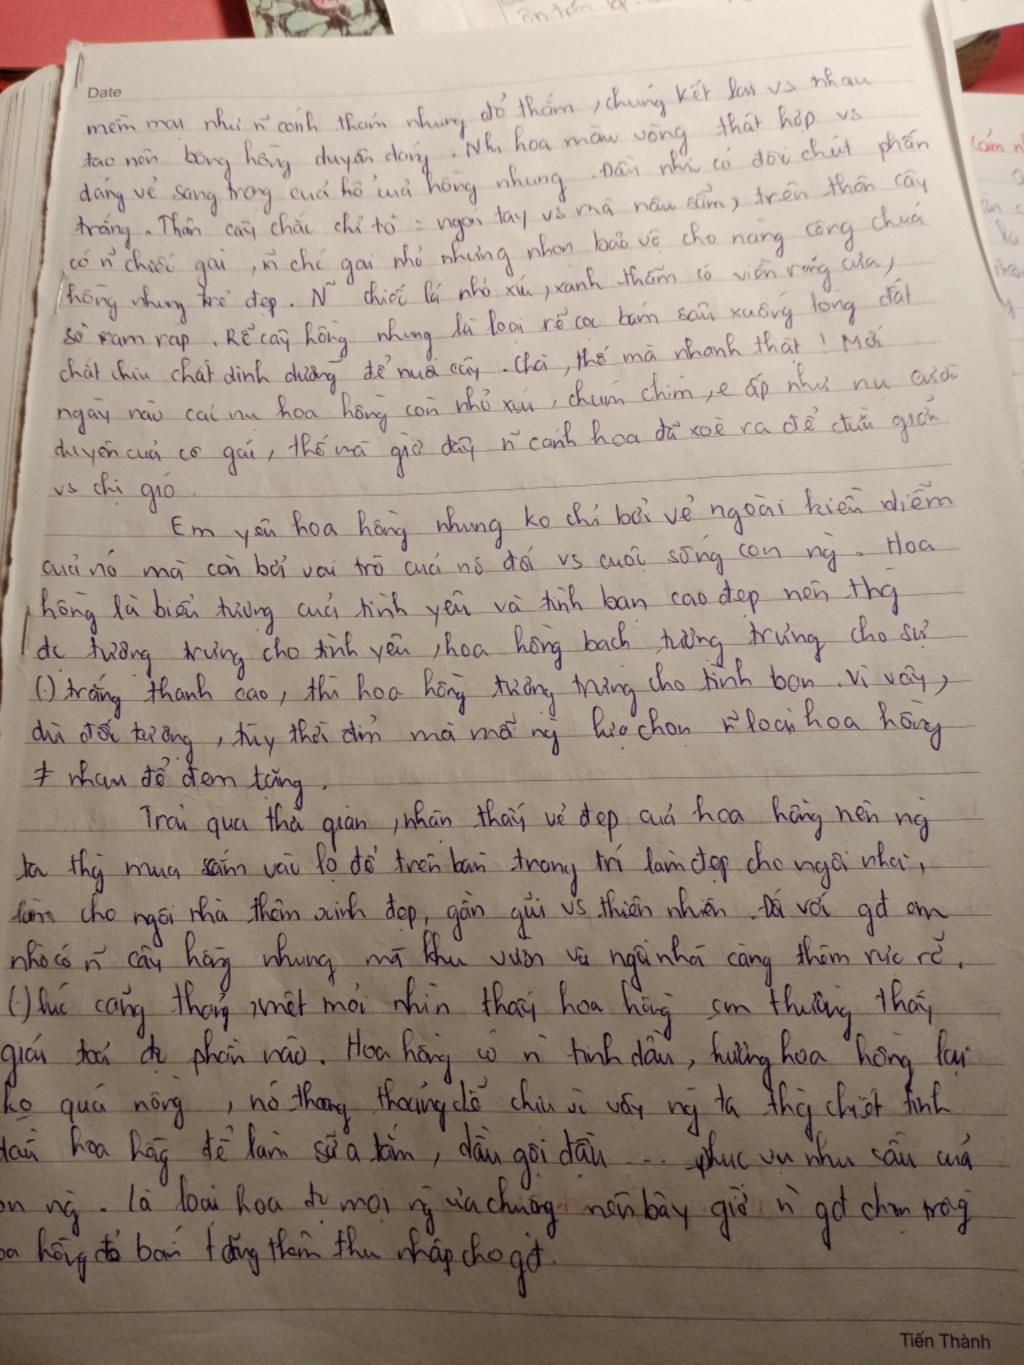 Date
mềm mại như n̄ cánh tham nhung đỏ thắm, chúng kết lại vs nhau
tạo nên bông hồng duyên dáng. Nhị hoa màu vàng thật hợp vs
dáng vẻ sang trọng của hồng nhung. Đầu nhị có đôi chút phấn
trắng. Thân cây chắc chỉ to = ngón tay vs mà nâu sẫm, trên thân cây
có n̄ chiếc gai, n̄ chiếc gai nhỏ nhưng nhọn bảo vệ cho nàng công chúa
hồng nhung trẻ đẹp. N̄ chiếc lá nhỏ xíu, xanh thẫm có viền răng cưa,
sờ ram ráp. Rễ cây hồng nhung là loại rễ cọc bám sâu xuống lòng đất
chắt chiu chất dinh dưỡng để nuôi cây. Chà, thế mà nhanh thật! Mới
ngày nào cái nụ hoa hồng còn nhỏ xíu, chúm chím, e ấp như nụ cười
duyên của cô gái, thế mà giờ đây n̄ cánh hoa đã xoè ra để đùa giỡn
vs chị gió.
Em yêu hoa hồng nhung ko chỉ bởi vẻ ngoài kiều diễm
của nó mà còn bởi vai trò của nó đối vs cuộc sống con ng. Hoa
hồng là biểu tượng của tình yêu và tình bạn cao đẹp nên thg
đc tượng trưng cho tình yêu, hoa hồng bạch tượng trưng cho sự
(.) trắng thanh cao, thì hoa hồng tượng trưng cho tình bạn. Vì vậy,
dù đối tượng, tùy thời điểm mà mỗi ng lựa chọn n̄ loại hoa hồng
≠ nhau để đem tặng.
Trải qua thời gian, nhận thấy vẻ đẹp của hoa hồng nên ng
ta thg mua sắm vài lọ để trên bàn trang trí làm đẹp cho ngôi nhà,
làm cho ngôi nhà thêm xinh đẹp, gần gũi vs thiên nhiên. Đối với gđ em
nhờ có n̄ cây hồng nhung mà khu vườn và ngôi nhà càng thêm rực rỡ.
(.) lúc căng thẳng, mệt mỏi nhìn thấy hoa hồng em thường thấy
giải toả đc phần nào. Hoa hồng có n̄ tinh dầu, hương hoa hồng lại
ko quá nồng, nó thoang thoảng dễ chịu vì vậy ng ta thg chiết tinh
dầu hoa hồng để làm sữa tắm, dầu gội đầu ... phục vụ nhu cầu của
on ng. Là loài hoa đc mọi ng ưa chuộng nên bây giờ n̄ gđ chọn trồng
oa hồng để bán tăng thêm thu nhập cho gđ.
Tiến Thành